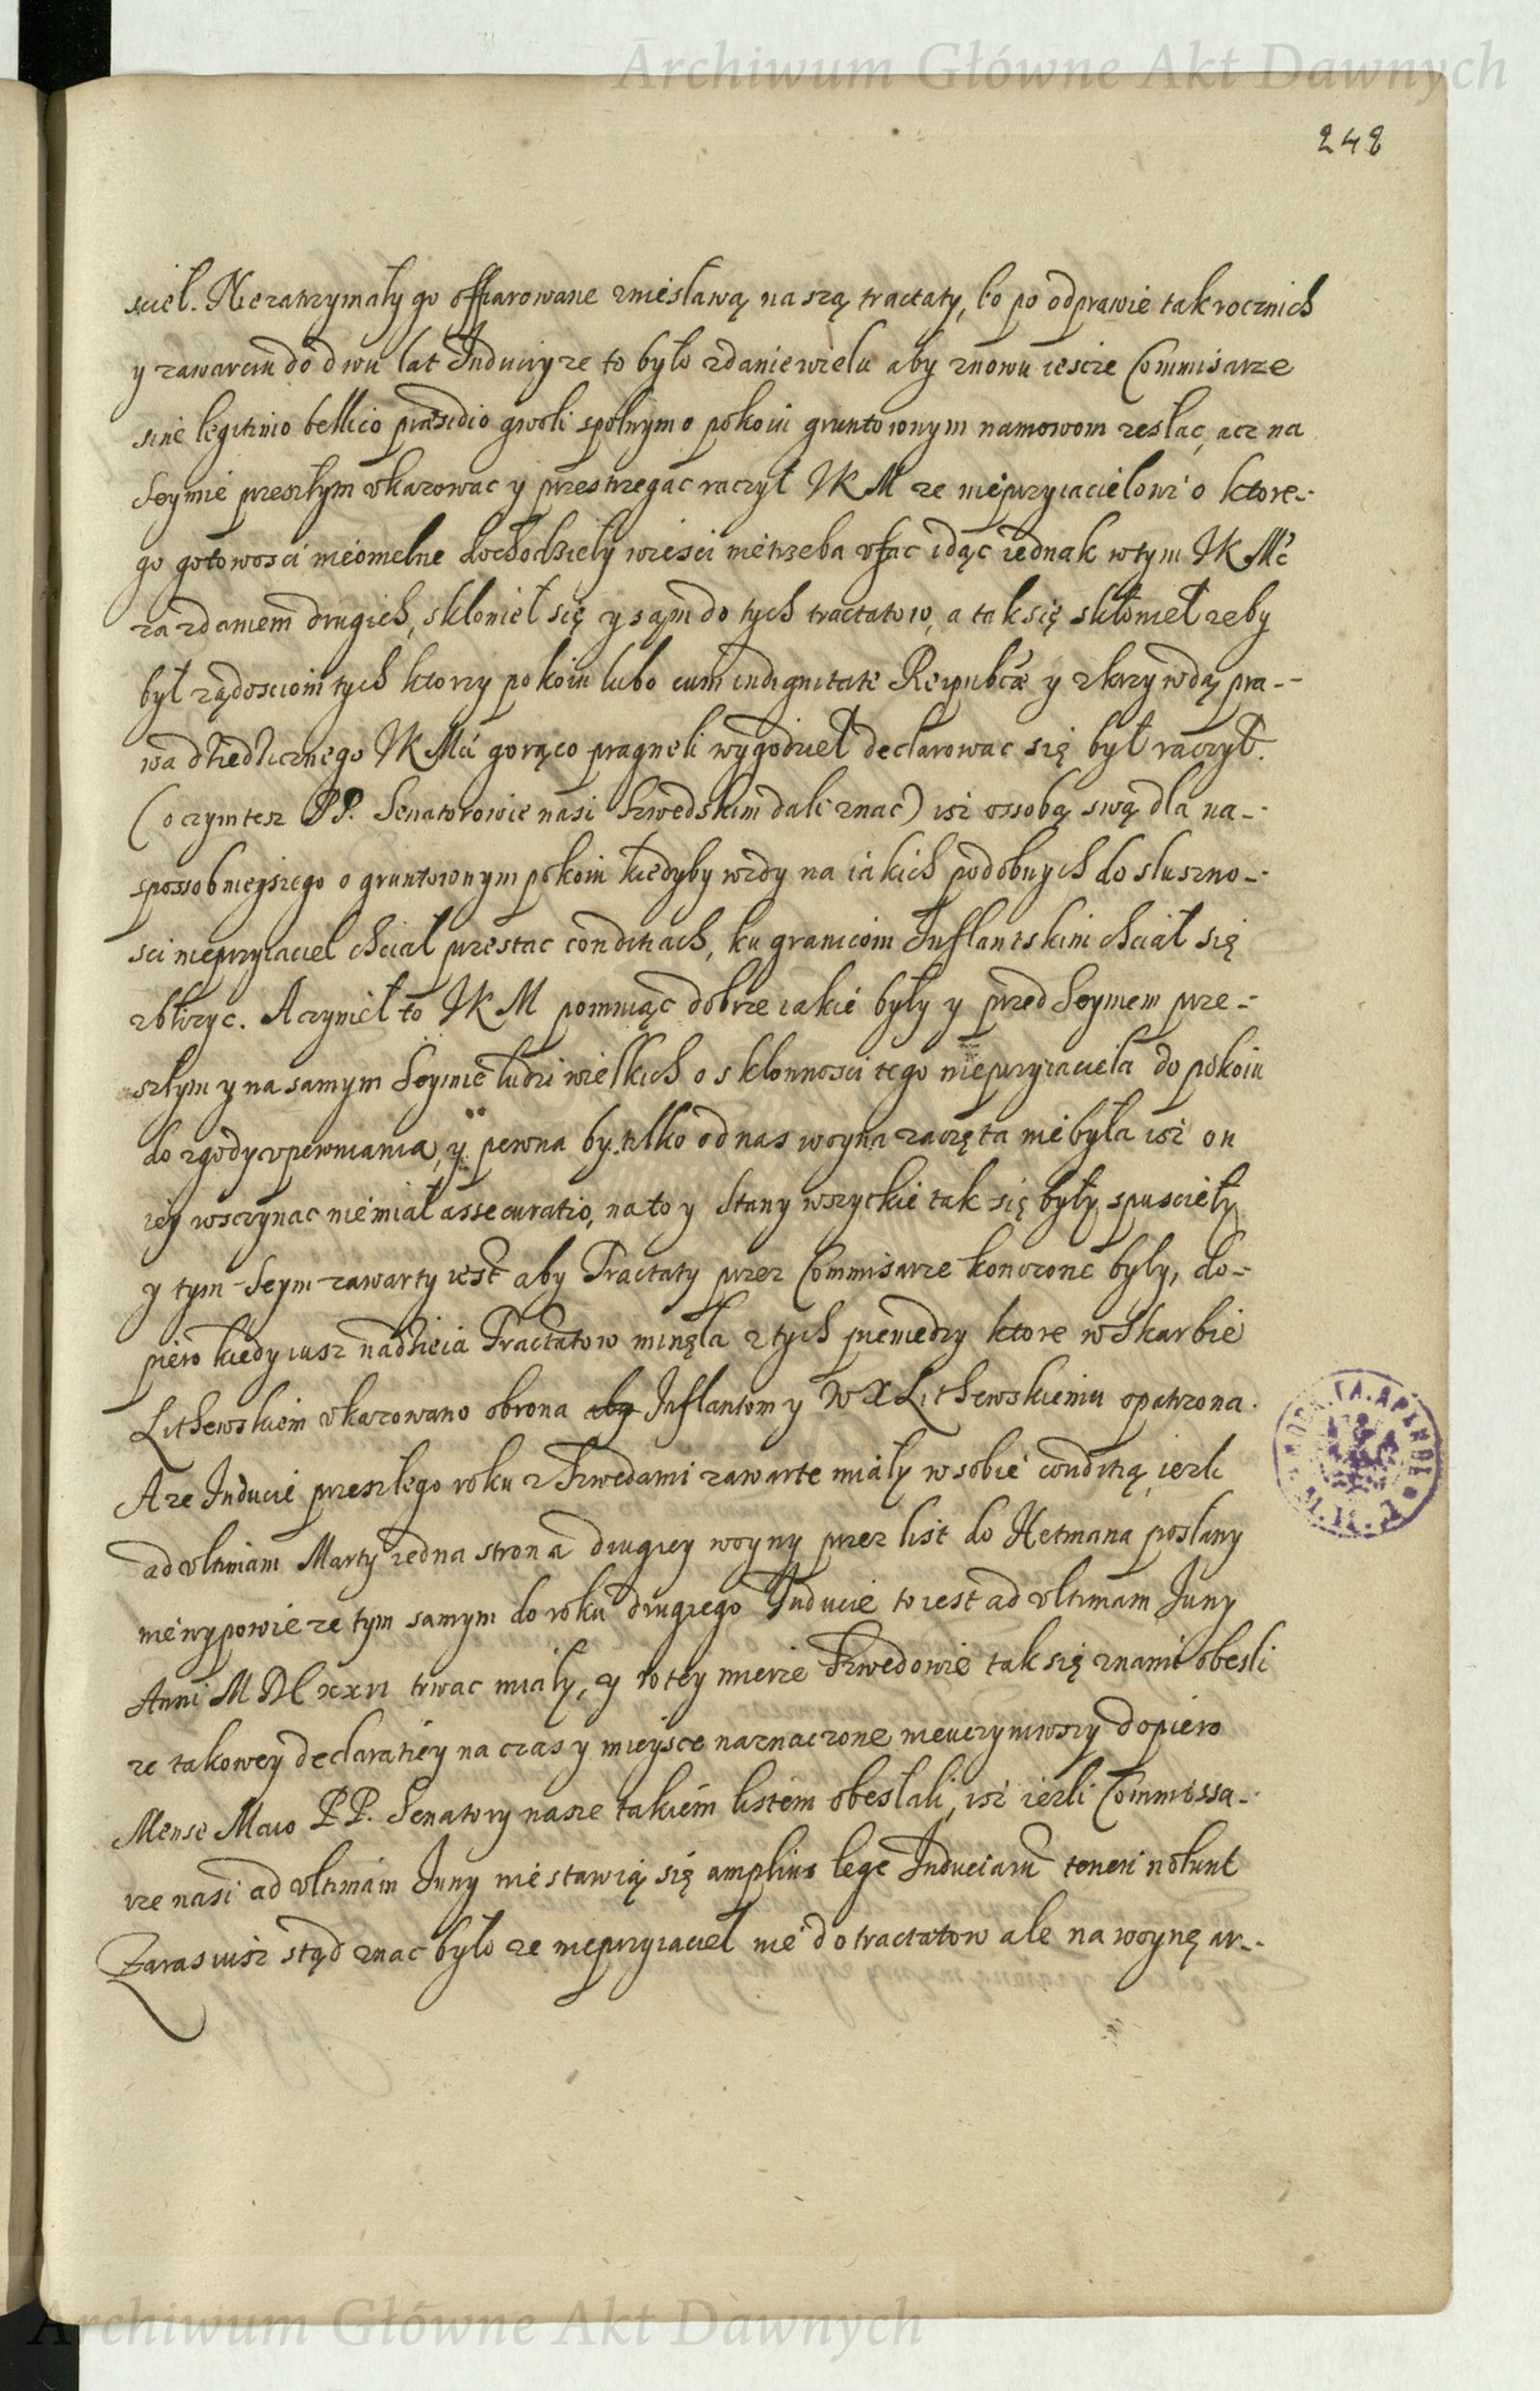 Archiwum Główne Akt Dawnych
248
sciel. Niezatrzymały go offiarowane zniesławą naszą tractaty, bo po odprawie takrocznich
y zawarciu do dwu lat Induciy ze to było zdanie wielu aby znowu iescze Commisarze
sine legitimo bellico præsidio gwoli spolnym o pokoiu gruntownym namowom zesłac, acz na
Seymie preszłym ukazowac y przestrzegac raczył JKM ze nieprzyiacielowi o ktore-
go gotowosci nieomelne dochodzieły wiesci nietrzeba ufac idąc iednak wtym JKMć
za zdaniem drugich, skłonieł się y sąm do tych tractatow, a tak się skłonieł zeby
był ządosciom tych ktorzy pokoiu lubo cum indignitate Reipublcæ y zkrzywdą pra-
wa dziedzicznego JKMći gorąco pragneli wygodzieł declarowac się był raczył.
(o czym tesz PP. Senatorowie nasi Szwedskim dali znac) isz ossobą swą dla na-
spossobnieyszego o gruntownym pokoiu kiedyby wzdy na iakich podobnych do słuszno-
sci nieprzyiaciel chciał przestac conditiach, ku granicom Inflantskim chciał się
zblizyc. A czynieł to JKM pomniąc dobrze iakie były y przed Seymem prze-
szłym y na samym Seymie ludzi wielkich o skłonnosci tego nieprzyiaciela do pokoiu
do zgody upewniania, y pewna by tilko od nas woyna zaczęta nie była isz on
iey wsczynac niemiał assecuratio, na to y Stany wszytkie tak się były spuscieły
y tym Seym zawarty iest aby Tractaty przez Commisarze konczone były, do-
piero kiedy iusz nadzieia Tractatow minęła z tych pieniedzy ktore w Skarbie
Lithewskiem ukazowano obrona aby Inflantom y WXLithewskiemu opatrzona.
A ze Inducie preszłego roku z Szwedami zawarte miały w sobie conditią, iezli
ad ultimam Marty iedna strona drugiey woyny przez list do Hetmana posłany
niewypowie ze tym samym do roku drugiego Inducie to iest ad ultimam Juny
Anni MDCXXVI trwac miały, y w tey mierze Szwedowie tak się z nami obesli
ze takowey declaratiey na czas y mieysce naznaczone nieuczyniwszy dopiero
Mense Maio PP. Senatory nasze takiem listem obesłali, isz iezli Commissa-
rze nasi ad ultimam Juny niestawią się amplius lege Induciarū teneri nolunt
Zaras iusz stąd znac było ze nieprzyiaciel nie do tractatow ale na woynę ar-
Archiwum Główne Akt Dawnych